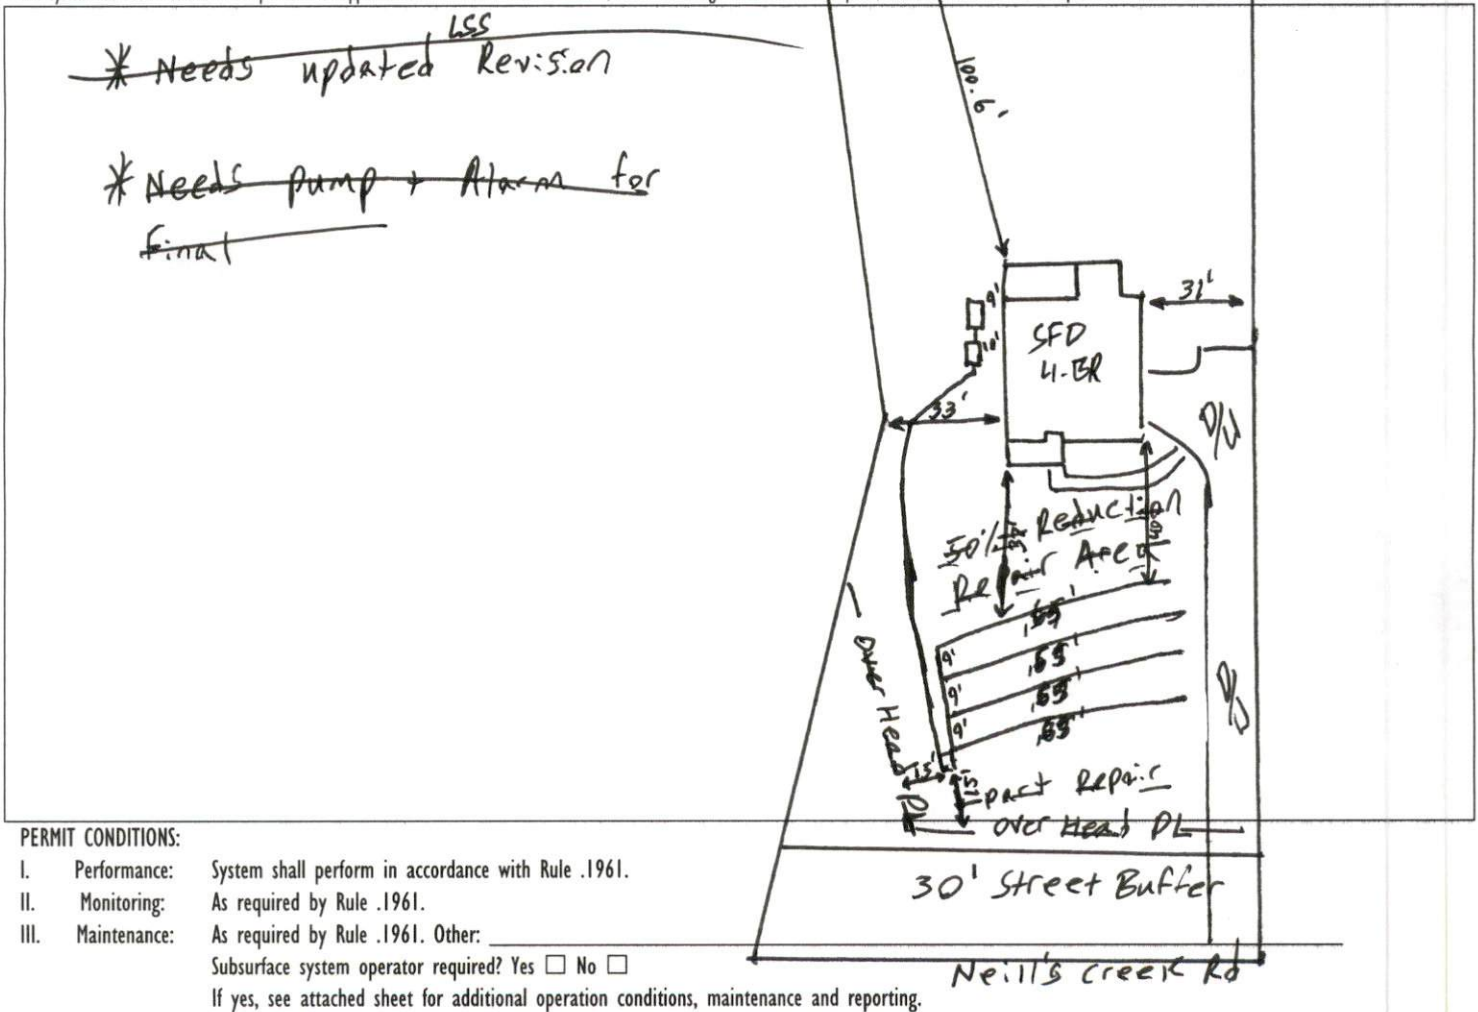 LSS
* Needs updated Revision
* Needs pump + Alarm for
final
100.6'
9'
10'
SFD
4-BR
31'
33'
D/W
50% Reduction
Repair Area
38'
55'
55'
55'
55'
9'
9'
9'
D/W
Over Head
PL
15'
15'
part Repair
over Head PL
30' Street Buffer
Neill's Creek Rd
PERMIT CONDITIONS:
I. Performance: System shall perform in accordance with Rule .1961.
II. Monitoring: As required by Rule .1961.
III. Maintenance: As required by Rule .1961. Other:
Subsurface system operator required? Yes ☐ No ☐
If yes, see attached sheet for additional operation conditions, maintenance and reporting.